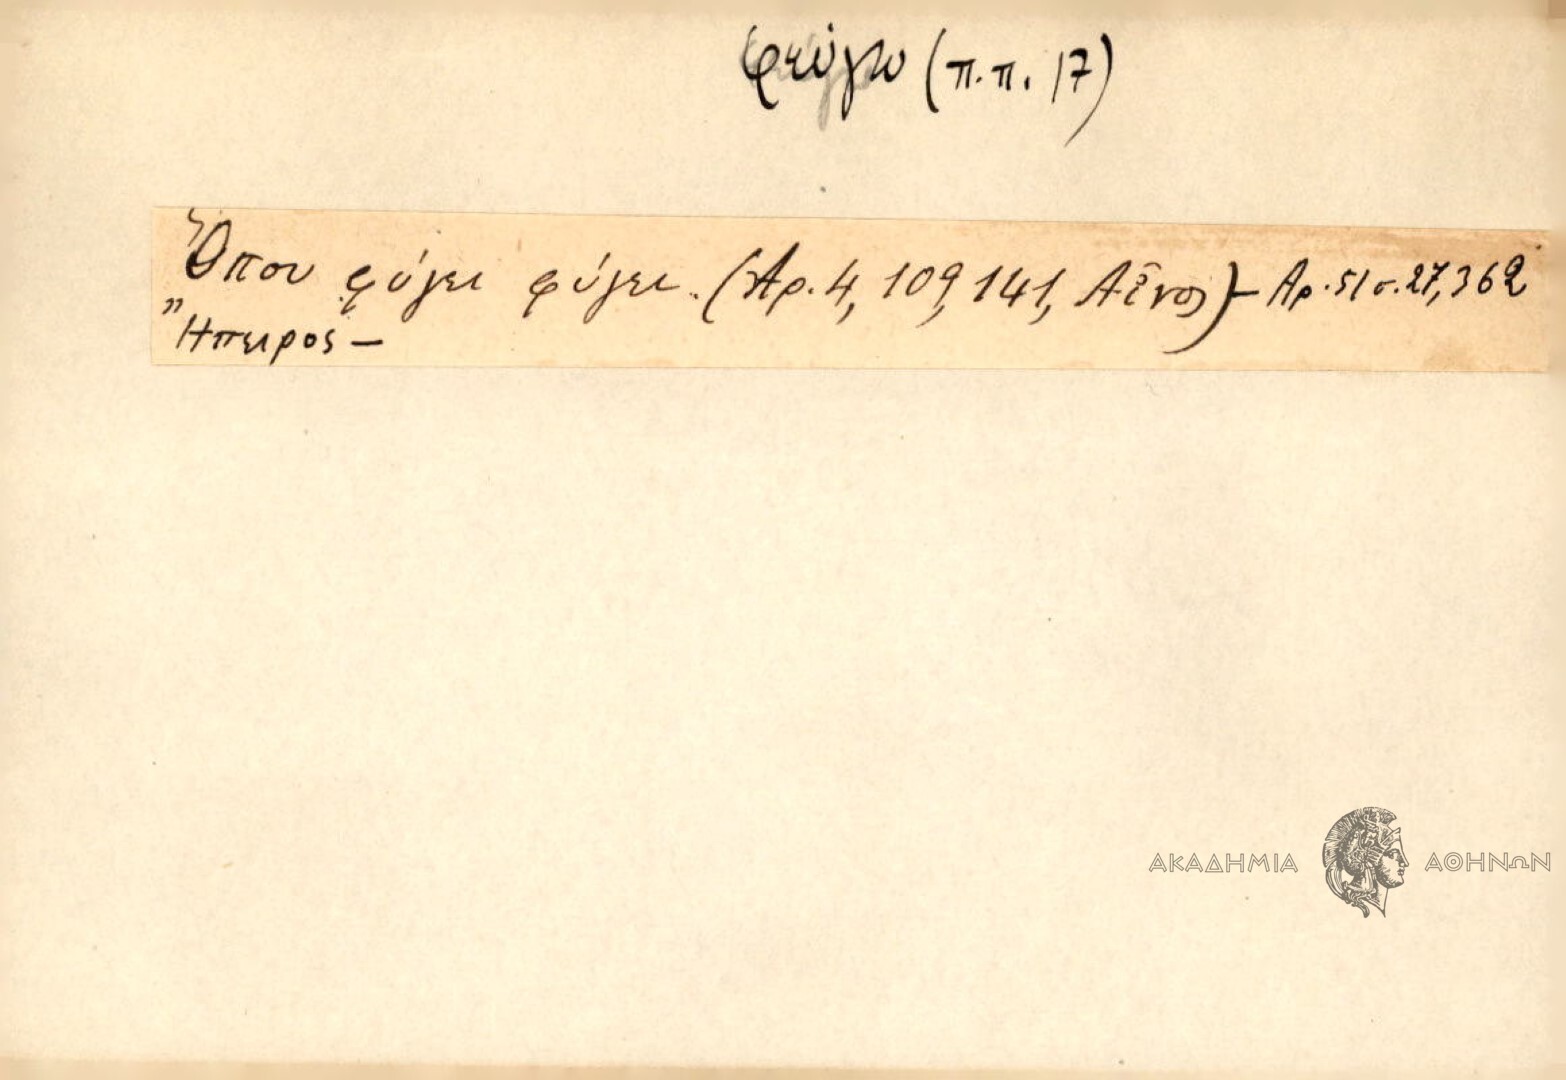 φεύγω (π.π. 17)
Ὅπου φύγει φύγει. (Αρ. 4, 109, 141, Αἶνος) – Αρ. 51 σ. 27, 362
Ἤπειρος –
ΑΚΑΔΗΜΙΑ ΑΘΗΝΩΝ